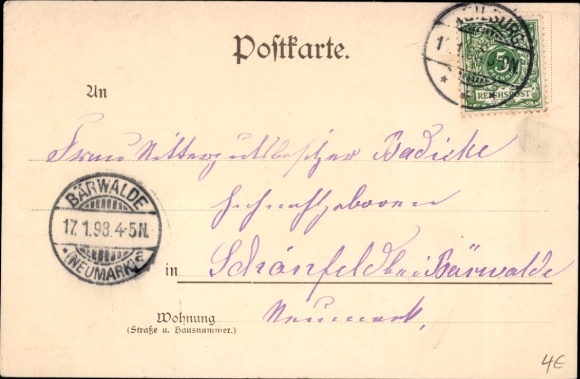 Postkarte.
5
REICHSPOST
An
Frau Rittergutsbesitzer Badicke
Hochwohlgeboren
BÄRWALDE
17.1.98.4-5N.
(NEUMARK)
in Schönfeld bei Bärwalde
Neumark,
Wohnung
(Straße u. Hausnummer.)
4€